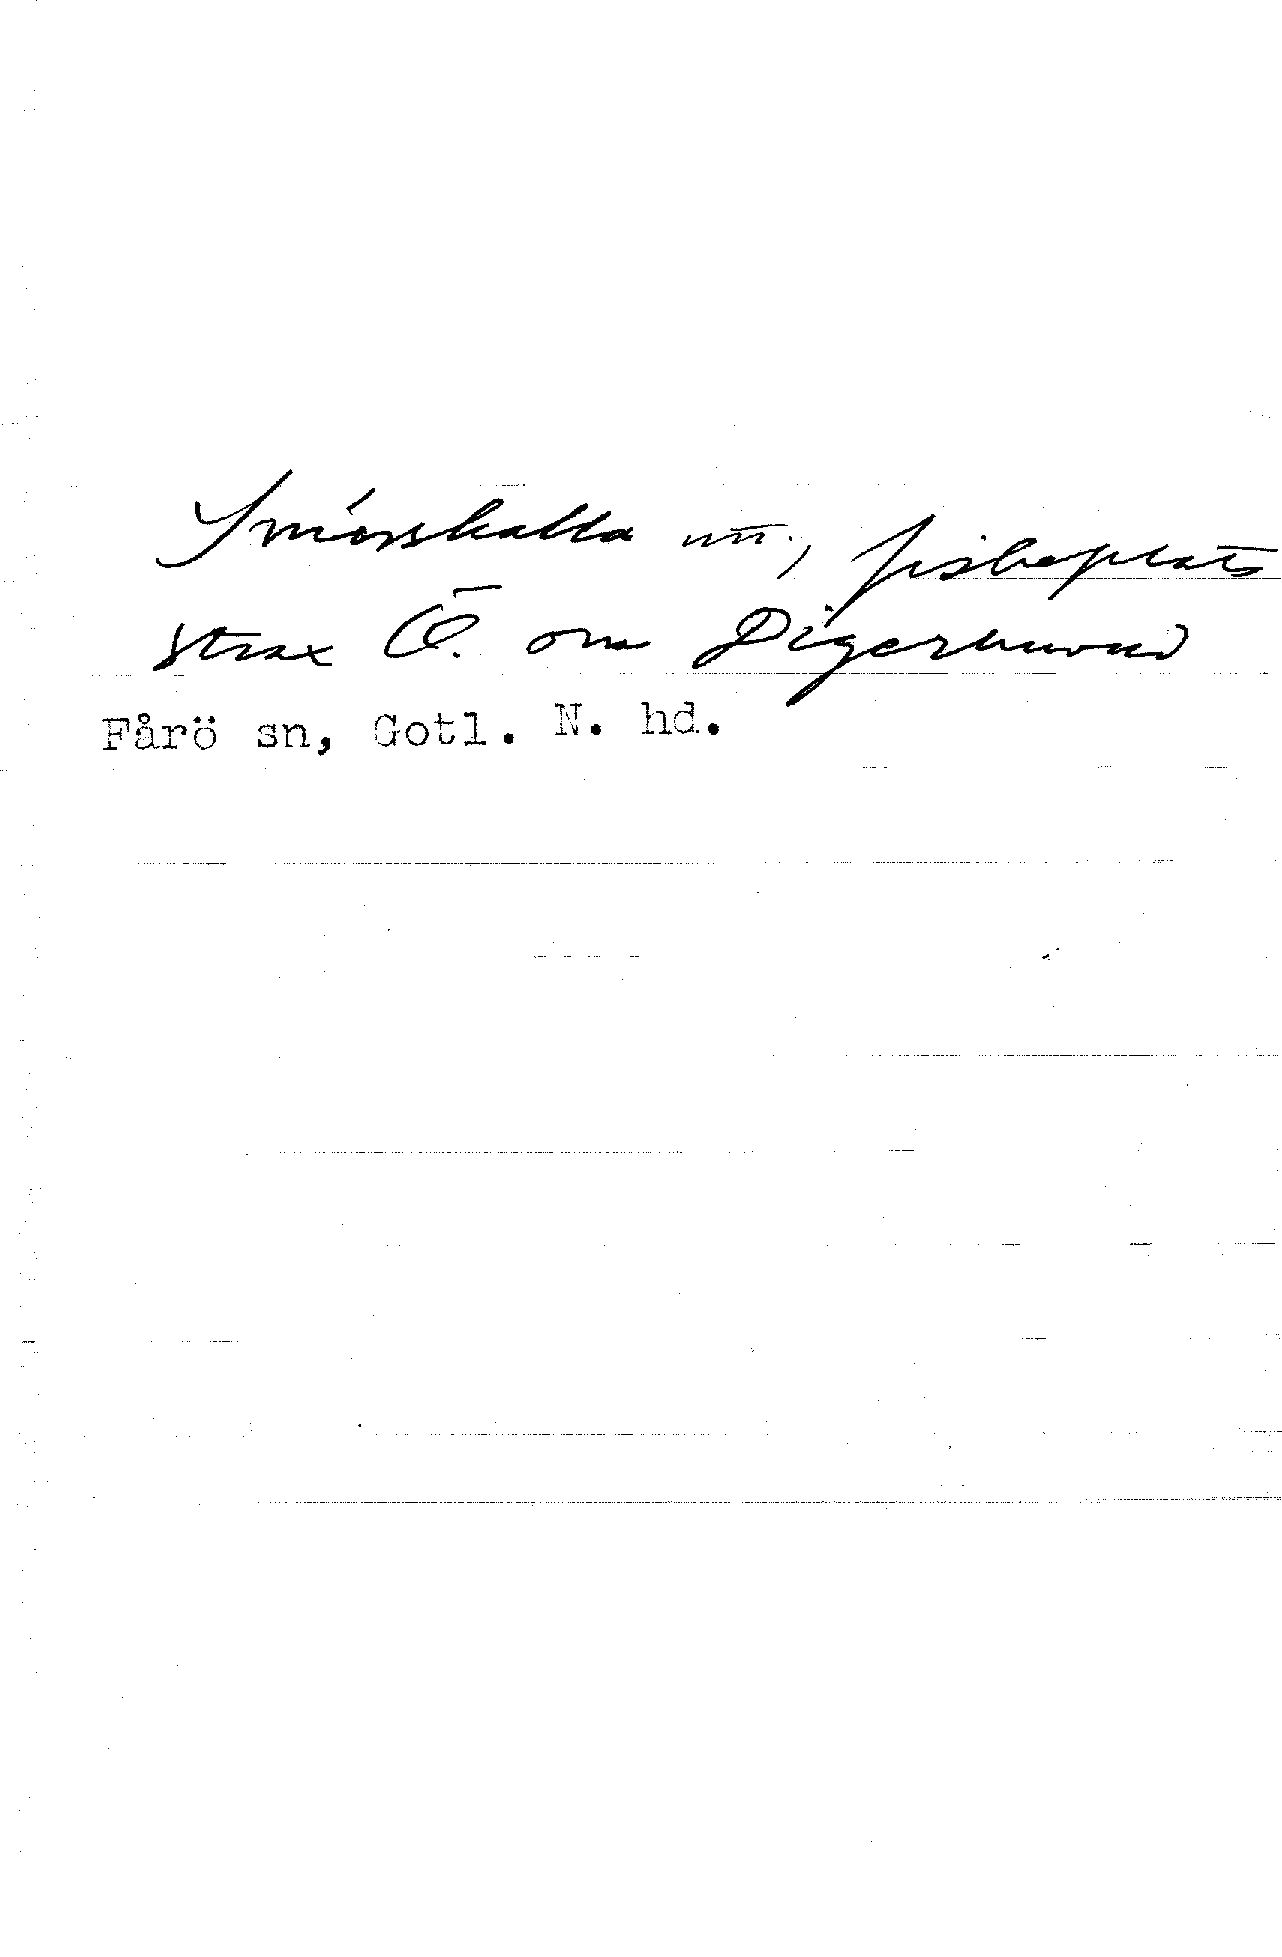 Smörskalla nn., fiskeplats
strax Ö. om Digerhuvud
Fårö sn, Gotl. N. hd.